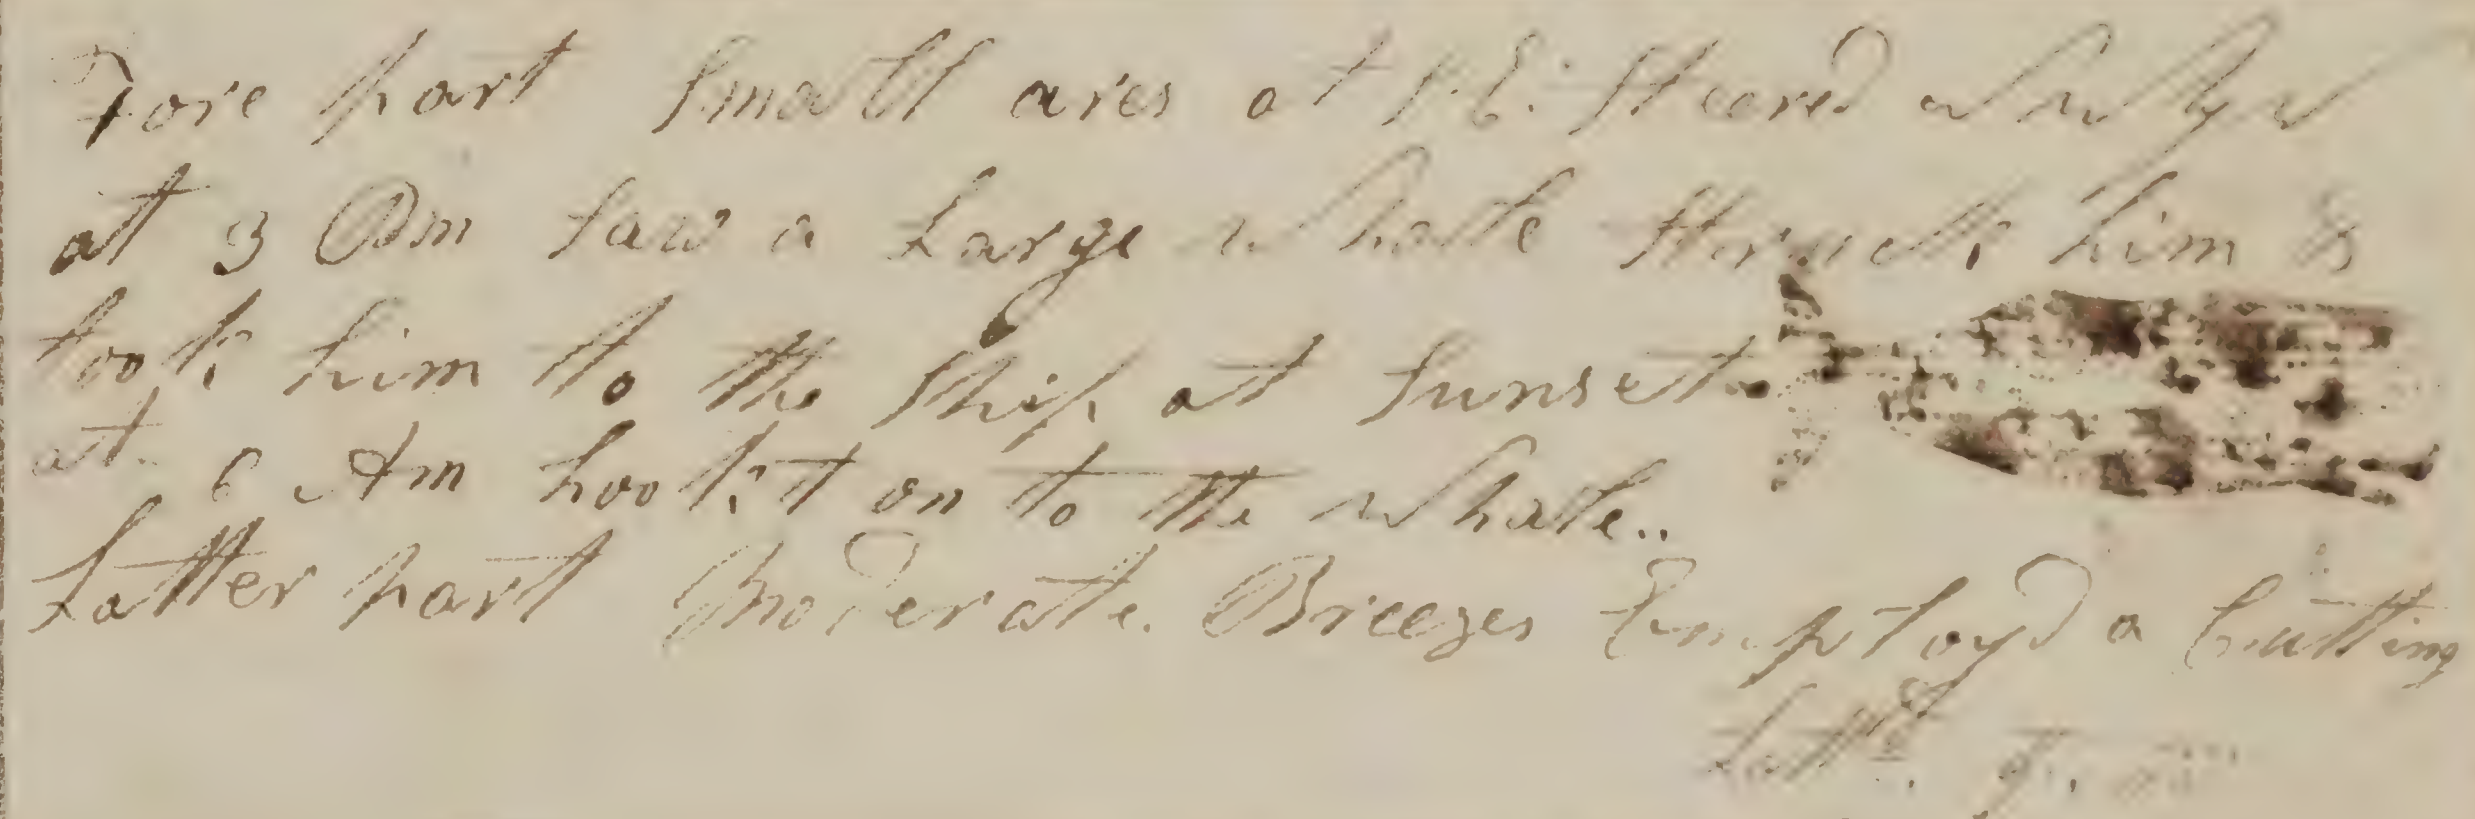 Fore part Small ares at S.E. Steered W by N
at 3 Pm Saw a Large whale Struck him &
took him to the Ship at Sunset
at 6 Am hook't on to the whale..
Latter part Moderate Breezes Employd a Cutting
Latt^d